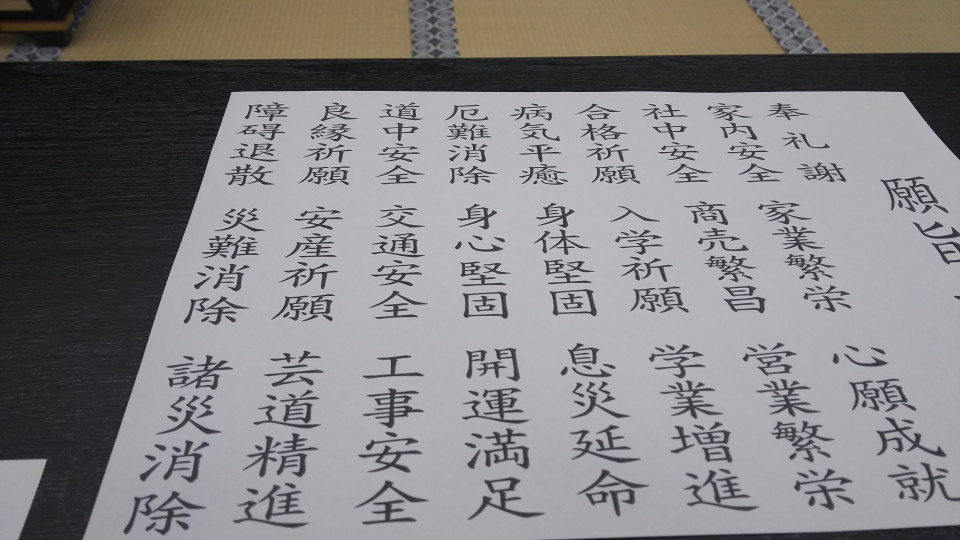 願旨
奉礼謝
家内安全 家業繁栄 心願成就
社中安全 商売繁昌 営業繁栄
合格祈願 入学祈願 学業増進
病気平癒 身体堅固 息災延命
厄難消除 身心堅固 開運満足
道中安全 交通安全 工事安全
良縁祈願 安産祈願 芸道精進
障碍退散 災難消除 諸災消除